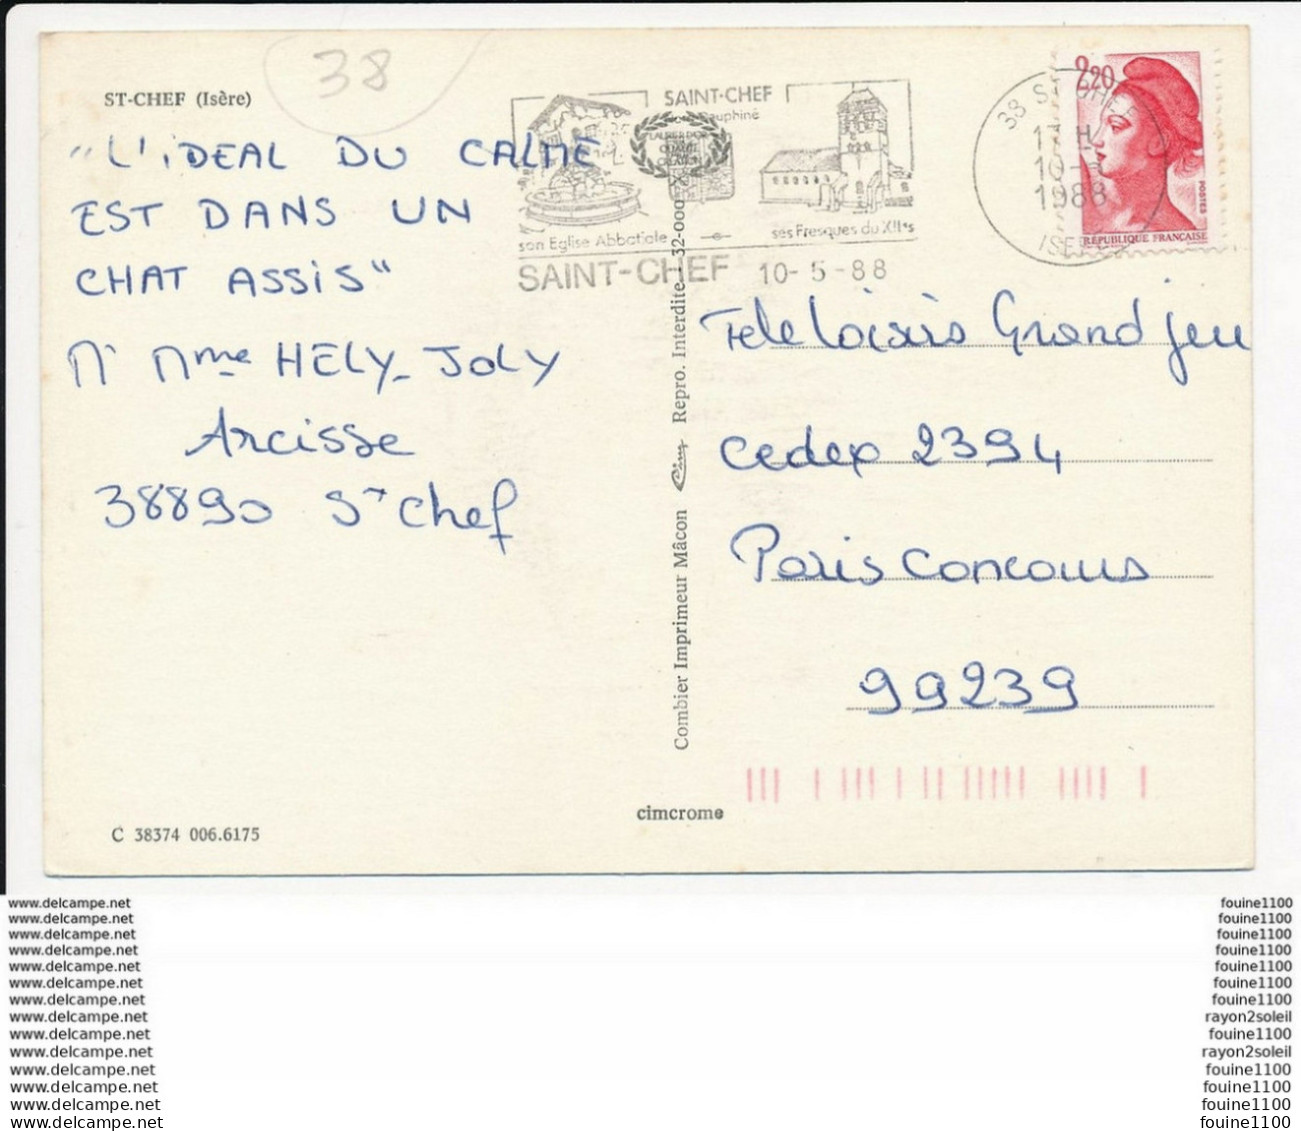 38
ST-CHEF (Isère)
"L'iDEAL DU CALME
EST DANS UN
CHAT ASSiS"
Mr Mme HELY-JOLY
Arcisse
38890 St Chef
C 38374 006.6175
SAINT-CHEF
Dauphiné
son Eglise Abbatiale
ses Fresques du XIIes
SAINT-CHEF 10-5-88
38 ST CHEF
17 H
10-5
1988
ISERE
2,20
POSTES
RÉPUBLIQUE FRANÇAISE
Combier Imprimeur Mâcon Cim Repro. Interdite 32-000
cimcrome
Tele Loisirs Grand jeu
cedex 2394
Paris Concours
99239
www.delcampe.net
www.delcampe.net
www.delcampe.net
www.delcampe.net
www.delcampe.net
www.delcampe.net
www.delcampe.net
www.delcampe.net
www.delcampe.net
www.delcampe.net
www.delcampe.net
www.delcampe.net
www.delcampe.net
www.delcampe.net
fouine1100
fouine1100
fouine1100
fouine1100
fouine1100
fouine1100
fouine1100
rayon2soleil
fouine1100
rayon2soleil
fouine1100
fouine1100
fouine1100
fouine1100